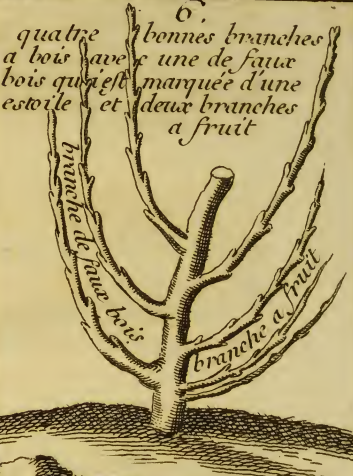 6.
quatre bonnes branches
a bois avec une de faux
bois qui est marquée d'une
estoile et deux branches
a fruit
branche de faux bois
branche a fruit